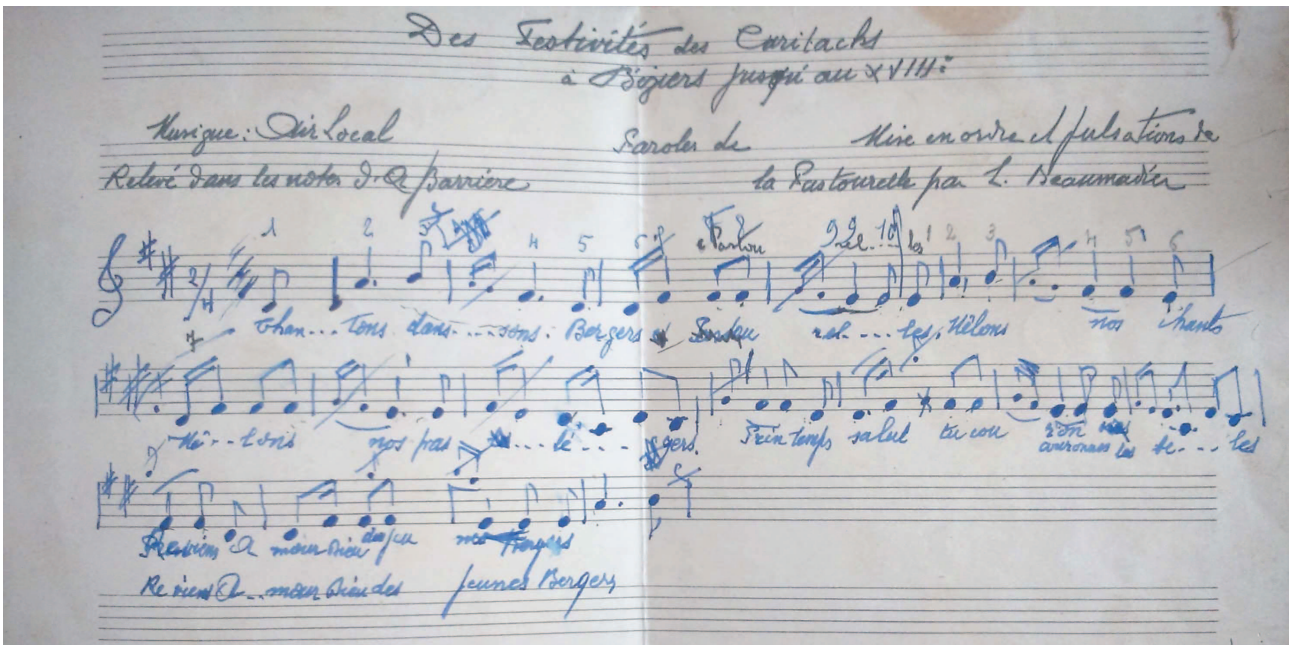 Des Festivités des Caritachs
à Béziers jusqu'au XVIII:
Musique: Air Local
Paroles de
Mise en ordre et pulsations de
Relevé dans les notes d. A Barrière
la Pastourelle par L. Beaumadier
1 2 4 5 9 1 2 3 4 5 6
2/4
Chan... tons dans.... sons. Bergers rel.... les, Mêlons nos chants
7
Mê... lons nos pas lé.... gers. Prin temps salut tu cou ron
couronnes les be... les
Reviens A mour Dieu
Re viens A.. mour Dieu des jeunes Bergers